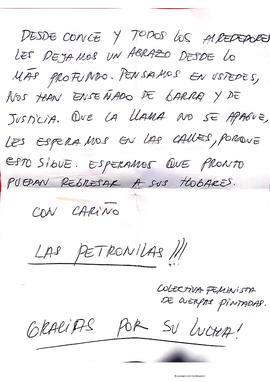 DESDE CONCE Y TODOS LOS ALREDEDORES
LES DEJAMOS UN ABRAZO DESDE LO
MÁS PROFUNDO. PENSAMOS EN USTEDES,
NOS HAN ENSEÑADO DE GARRA Y DE
JUSTICIA. QUE LA LLAMA NO SE APAGUE,
LES ESPERAMOS EN LAS CALLES, PORQUE
ESTO SIGUE. ESPERAMOS QUE PRONTO
PUEDAN REGRESAR A SUS HOGARES.
CON CARIÑO
LAS PETRONILAS!!!
COLECTIVA FEMINISTA
DE CUERPAS PINTADAS.
GRACIAS POR SU LUCHA!